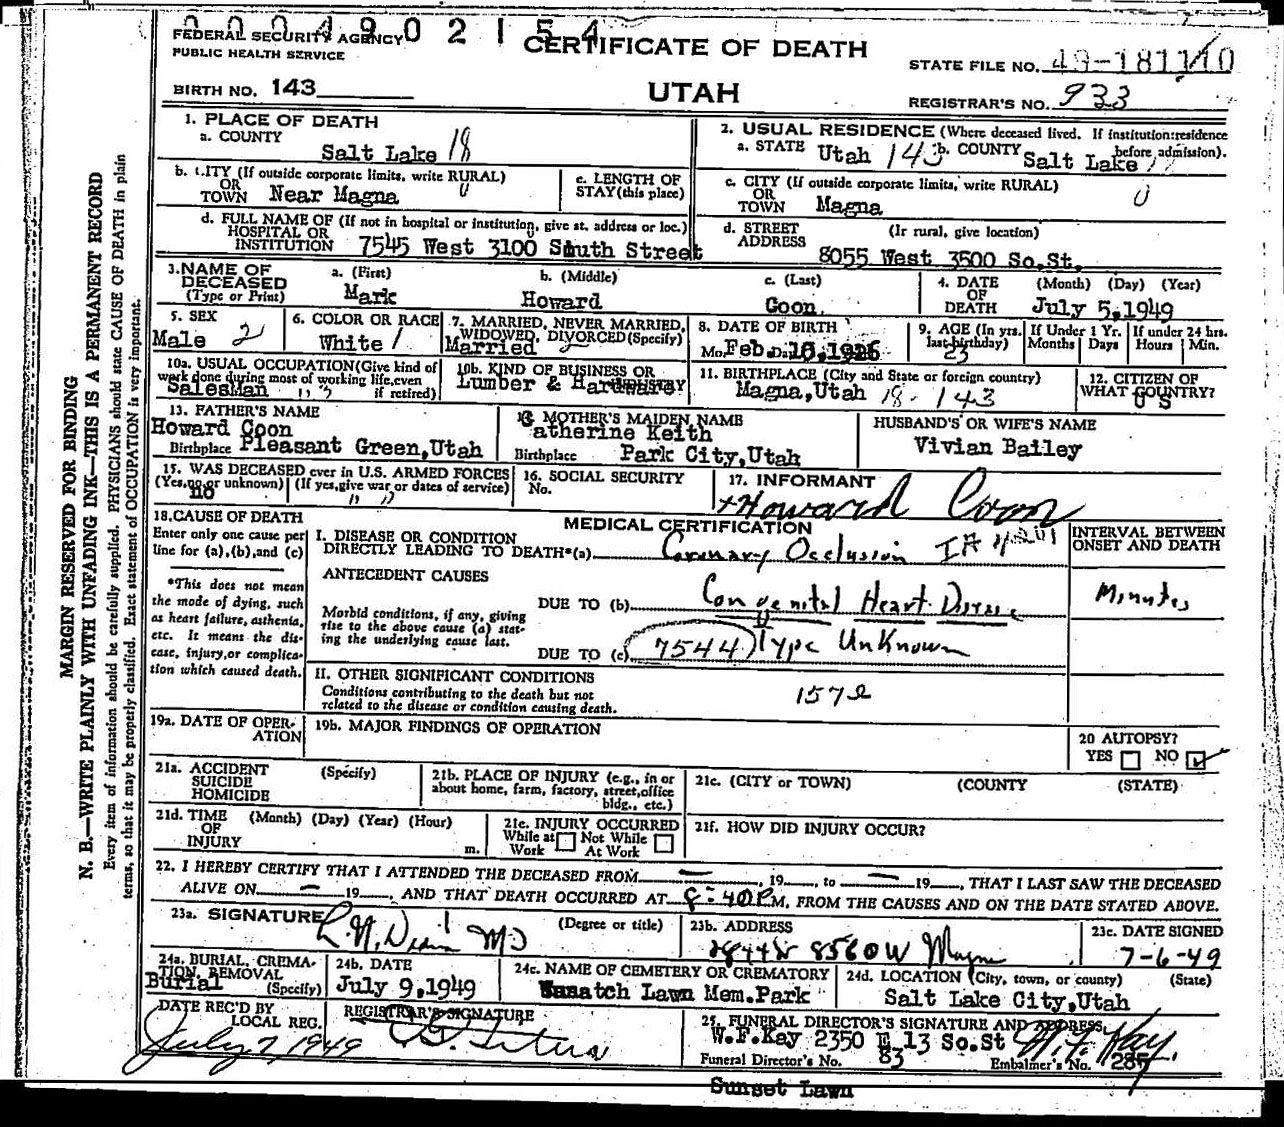 0004902154
FEDERAL SECURITY AGENCY
PUBLIC HEALTH SERVICE
CERTIFICATE OF DEATH
STATE FILE NO. 49-181110
BIRTH NO. 143
UTAH
REGISTRAR'S NO. 933
1. PLACE OF DEATH
a. COUNTY
Salt Lake 18
2. USUAL RESIDENCE (Where deceased lived. If institution:residence before admission).
a. STATE Utah 143 b. COUNTY Salt Lake
b. CITY (If outside corporate limits, write RURAL)
OR
TOWN Near Magna 0
c. LENGTH OF
STAY (this place)
c. CITY (If outside corporate limits, write RURAL)
OR
TOWN Magna 0
d. FULL NAME OF (If not in hospital or institution, give st. address or loc.)
HOSPITAL OR
INSTITUTION 7545 West 3100 South Street
d. STREET (Ir rural, give location)
ADDRESS 8055 West 3500 So.St.
3.NAME OF
DECEASED
(Type or Print)
a. (First)
Mark
b. (Middle)
Howard
c. (Last)
Coon
4. DATE
OF
DEATH
(Month) (Day) (Year)
July 5,1949
5. SEX
Male 2
6. COLOR OR RACE
White 1
7. MARRIED, NEVER MARRIED,
WIDOWED, DIVORCED(Specify)
Married 2
8. DATE OF BIRTH
Mo. Feb. Da. 10,1926
9. AGE (In yrs.
last birthday)
23
If Under 1 Yr.
Months Days
If under 24 hrs.
Hours Min.
10a. USUAL OCCUPATION(Give kind of
work done during most of working life,even
if retired)
SalesMan
10b. KIND OF BUSINESS OR
INDUSTRY
Lumber & Hardware
11. BIRTHPLACE (City and State or foreign country)
Magna,Utah 18-143
12. CITIZEN OF
WHAT COUNTRY?
U S
13. FATHER'S NAME
Howard Coon
Birthplace Pleasant Green,Utah
MOTHER'S MAIDEN NAME
Catherine Keith
Birthplace Park City,Utah
HUSBAND'S OR WIFE'S NAME
Vivian Bailey
15. WAS DECEASED ever in U.S. ARMED FORCES
(Yes,no,or unknown) (If yes,give war or dates of service)
no
16. SOCIAL SECURITY
No.
17. INFORMANT
+Howard Coon
18.CAUSE OF DEATH
Enter only one cause per
line for (a),(b),and (c)
*This does not mean
the mode of dying, such
as heart failure, asthenia,
etc. It means the dis-
case, injury,or complica-
tion which caused death.
MEDICAL CERTIFICATION
I. DISEASE OR CONDITION
DIRECTLY LEADING TO DEATH*(a) Coronary Occlusion
INTERVAL BETWEEN
ONSET AND DEATH
Minutes
ANTECEDENT CAUSES
DUE TO (b) Congenital Heart Disease
Morbid conditions, if any, giving
rise to the above cause (a) stat-
ing the underlying cause last.
DUE TO (c) 7544 Type Unknown
II. OTHER SIGNIFICANT CONDITIONS
Conditions contributing to the death but not
related to the disease or condition causing death.
157
19a. DATE OF OPER-
ATION
19b. MAJOR FINDINGS OF OPERATION
20 AUTOPSY?
YES NO
21a. ACCIDENT (Specify)
SUICIDE
HOMICIDE
21b. PLACE OF INJURY (e.g., in or
about home, farm, factory, street,office
bldg., etc.)
21c. (CITY or TOWN) (COUNTY (STATE)
21d. TIME (Month) (Day) (Year) (Hour)
OF
INJURY m.
21e. INJURY OCCURRED
While at Not While
Work At Work
21f. HOW DID INJURY OCCUR?
22. I HEREBY CERTIFY THAT I ATTENDED THE DECEASED FROM — , 19 , to — 19 , THAT I LAST SAW THE DECEASED
ALIVE ON — 19 , AND THAT DEATH OCCURRED AT 8:40P M, FROM THE CAUSES AND ON THE DATE STATED ABOVE.
23a. SIGNATURE (Degree or title)
MD
23b. ADDRESS
8560W Magna
23c. DATE SIGNED
7-6-49
24a. BURIAL, CREMA-
TION, REMOVAL
(Specify)
Burial
24b. DATE
July 9,1949
24c. NAME OF CEMETERY OR CREMATORY
Wasatch Lawn Mem.Park
24d. LOCATION (City, town, or county) (State)
Salt Lake City,Utah
DATE REC'D BY
LOCAL REG.
July 7, 1949
REGISTRAR'S SIGNATURE
25. FUNERAL DIRECTOR'S SIGNATURE AND ADDRESS
W.F.Kay 2350 E 13 So.St W. F. Kay.
Funeral Director's No. 83 Embalmer's No. 285
Sunset Lawn
MARGIN RESERVED FOR BINDING
N. B.—WRITE PLAINLY WITH UNFADING INK—THIS IS A PERMANENT RECORD
Every item of information should be carefully supplied. PHYSICIANS should state CAUSE OF DEATH in plain
terms, so that it may be properly classified. Exact statement of OCCUPATION is very important.